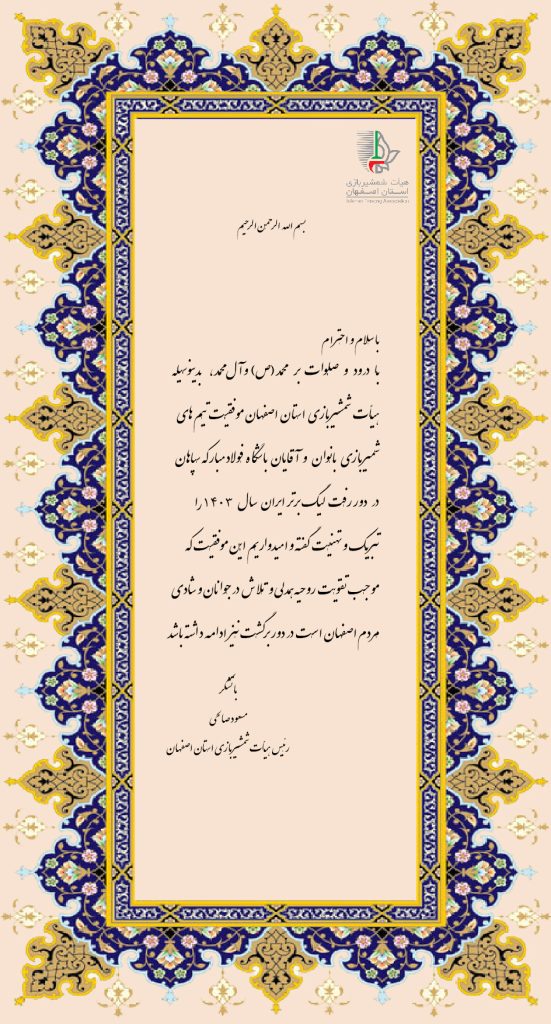 هیأت شمشیربازی
استان اصفهان
Isfahan Fencing Association
بسم الله الرحمن الرحیم
باسلام و احترام
با درود و صلوات بر محمد (ص) وآل محمد، بدینوسیله
هیأت شمشیربازی استان اصفهان موفقیت تیم های
شمشیربازی بانوان و آقایان باشگاه فولاد مبارکه سپاهان
در دور رفت لیگ برتر ایران سال ۱۴۰۳ را
تبریک و تهنیت گفته و امیدواریم این موفقیت که
موجب تقویت روحیه همدلی و تلاش در جوانان و شادی
مردم اصفهان است در دور برگشت نیز ادامه داشته باشد
باتشکر
مسعود صالحی
رئیس هیأت شمشیربازی استان اصفهان